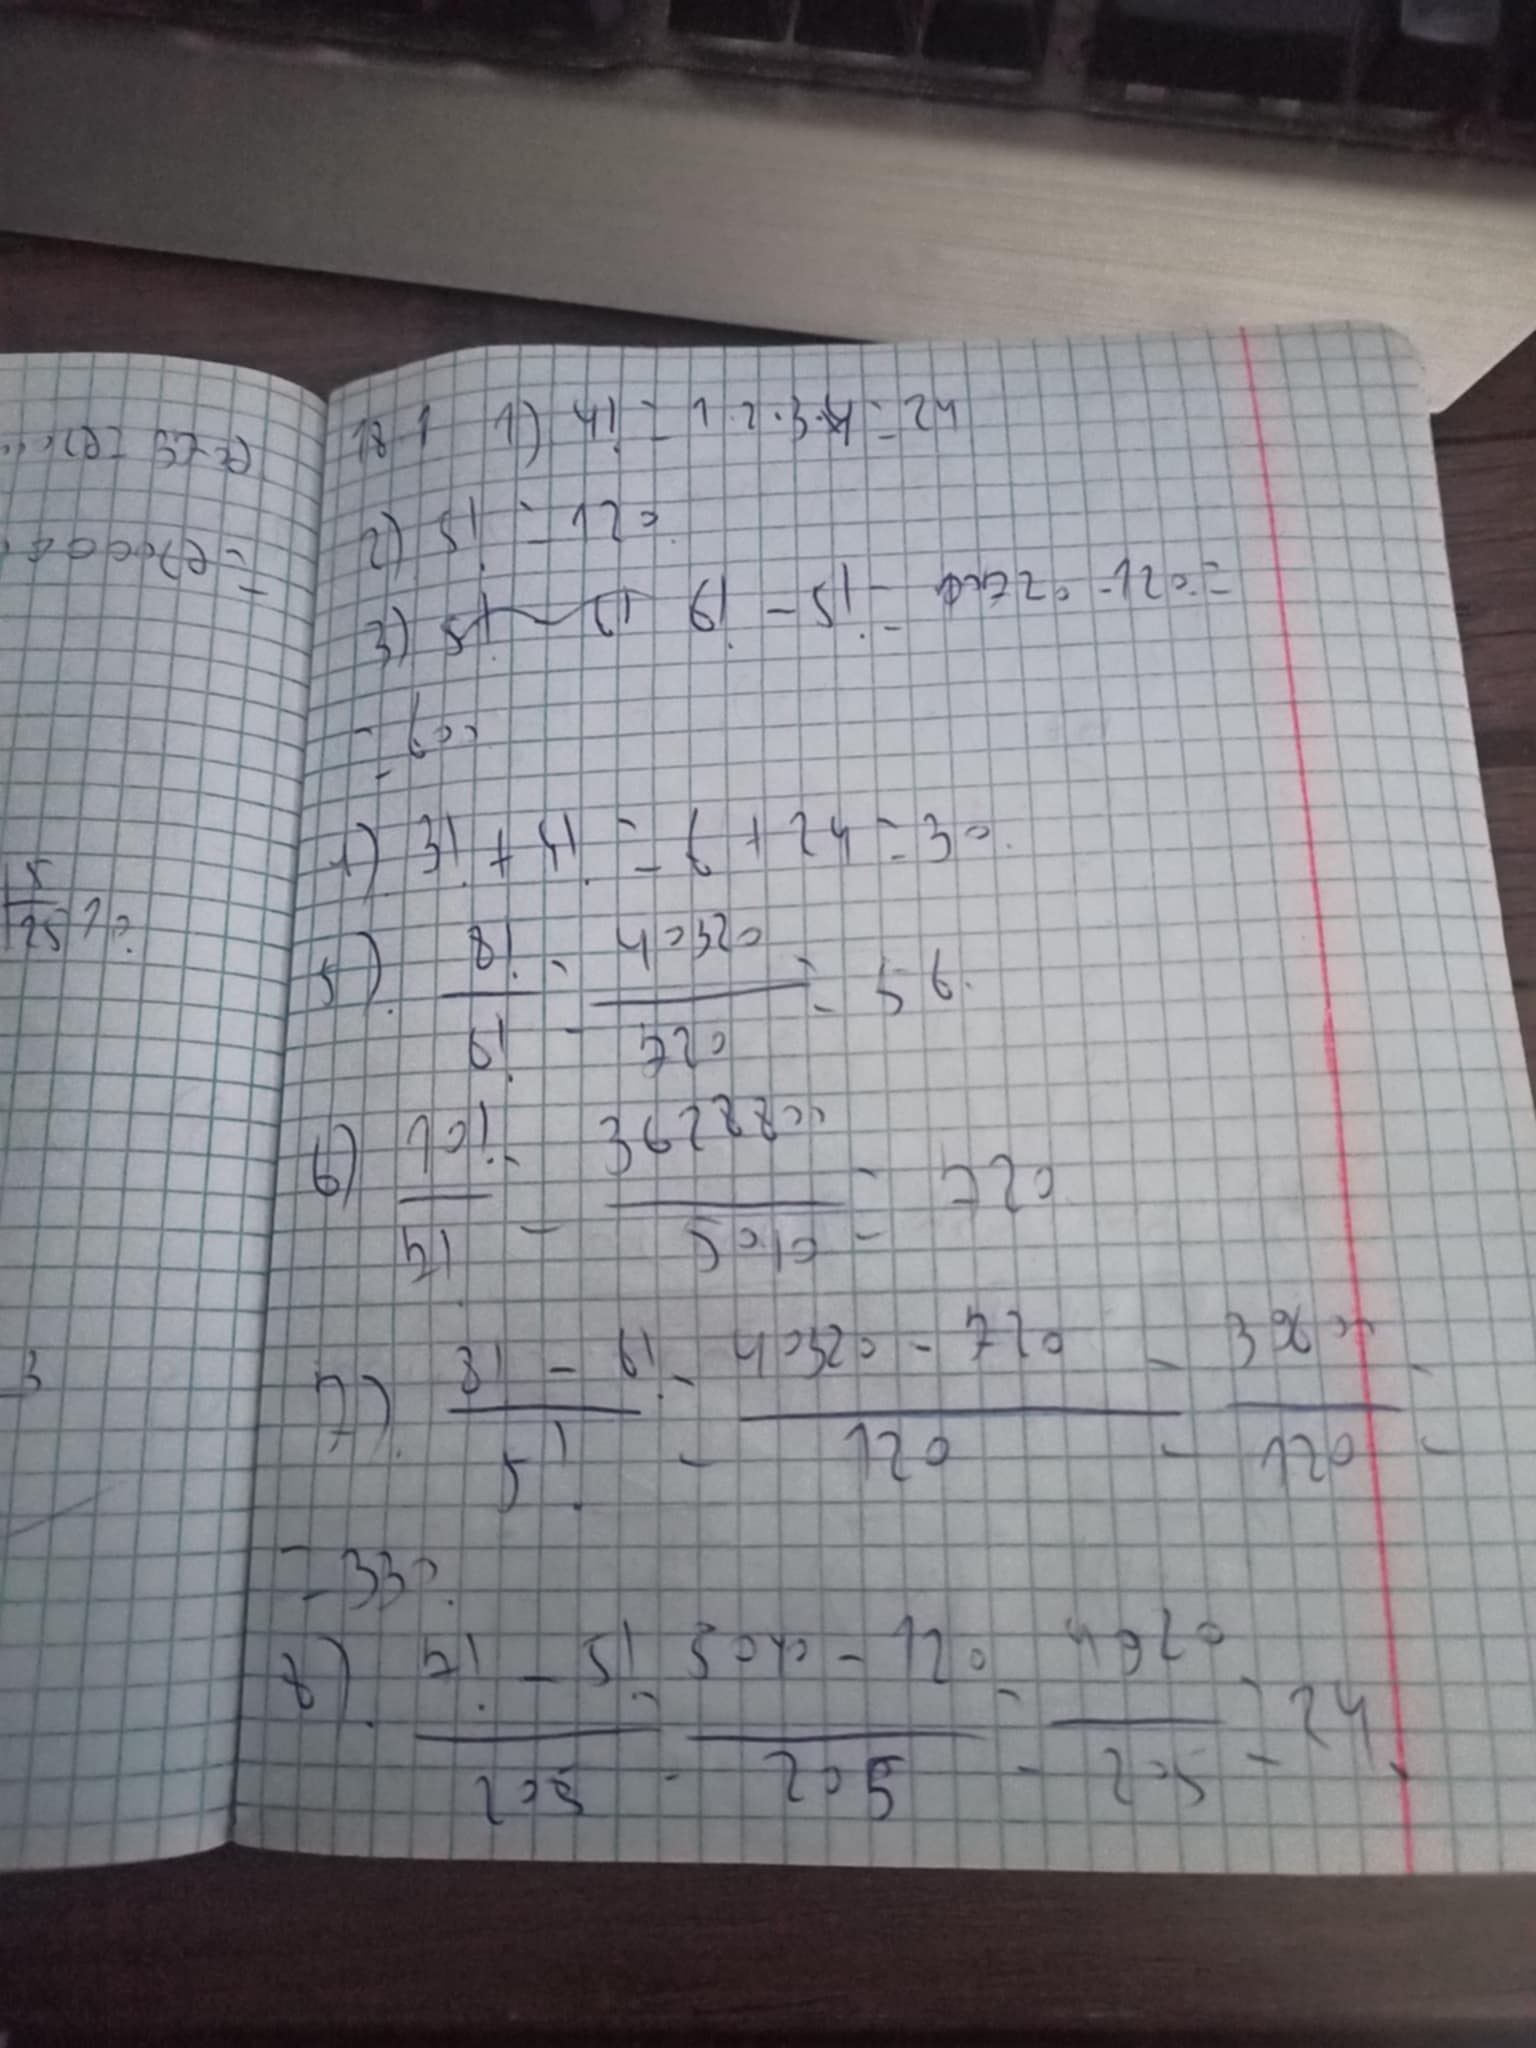 18.1 1) 4! = 1·2·3·4 = 24
2) 5! = 120.
3) 6! - 5! = 720 - 120 =
= 600
4) 3! + 4! = 6 + 24 = 30.
5) 8!/6! = 40320/720 = 56.
6) 10!/7! = 3628800/5040 = 720.
7) (8! - 6!)/5! = (40320 - 720)/120 = 39600/120 =
= 330.
8) (7! - 5!)/205 = (5040 - 120)/205 = 4920/205 = 24.
5/25
3